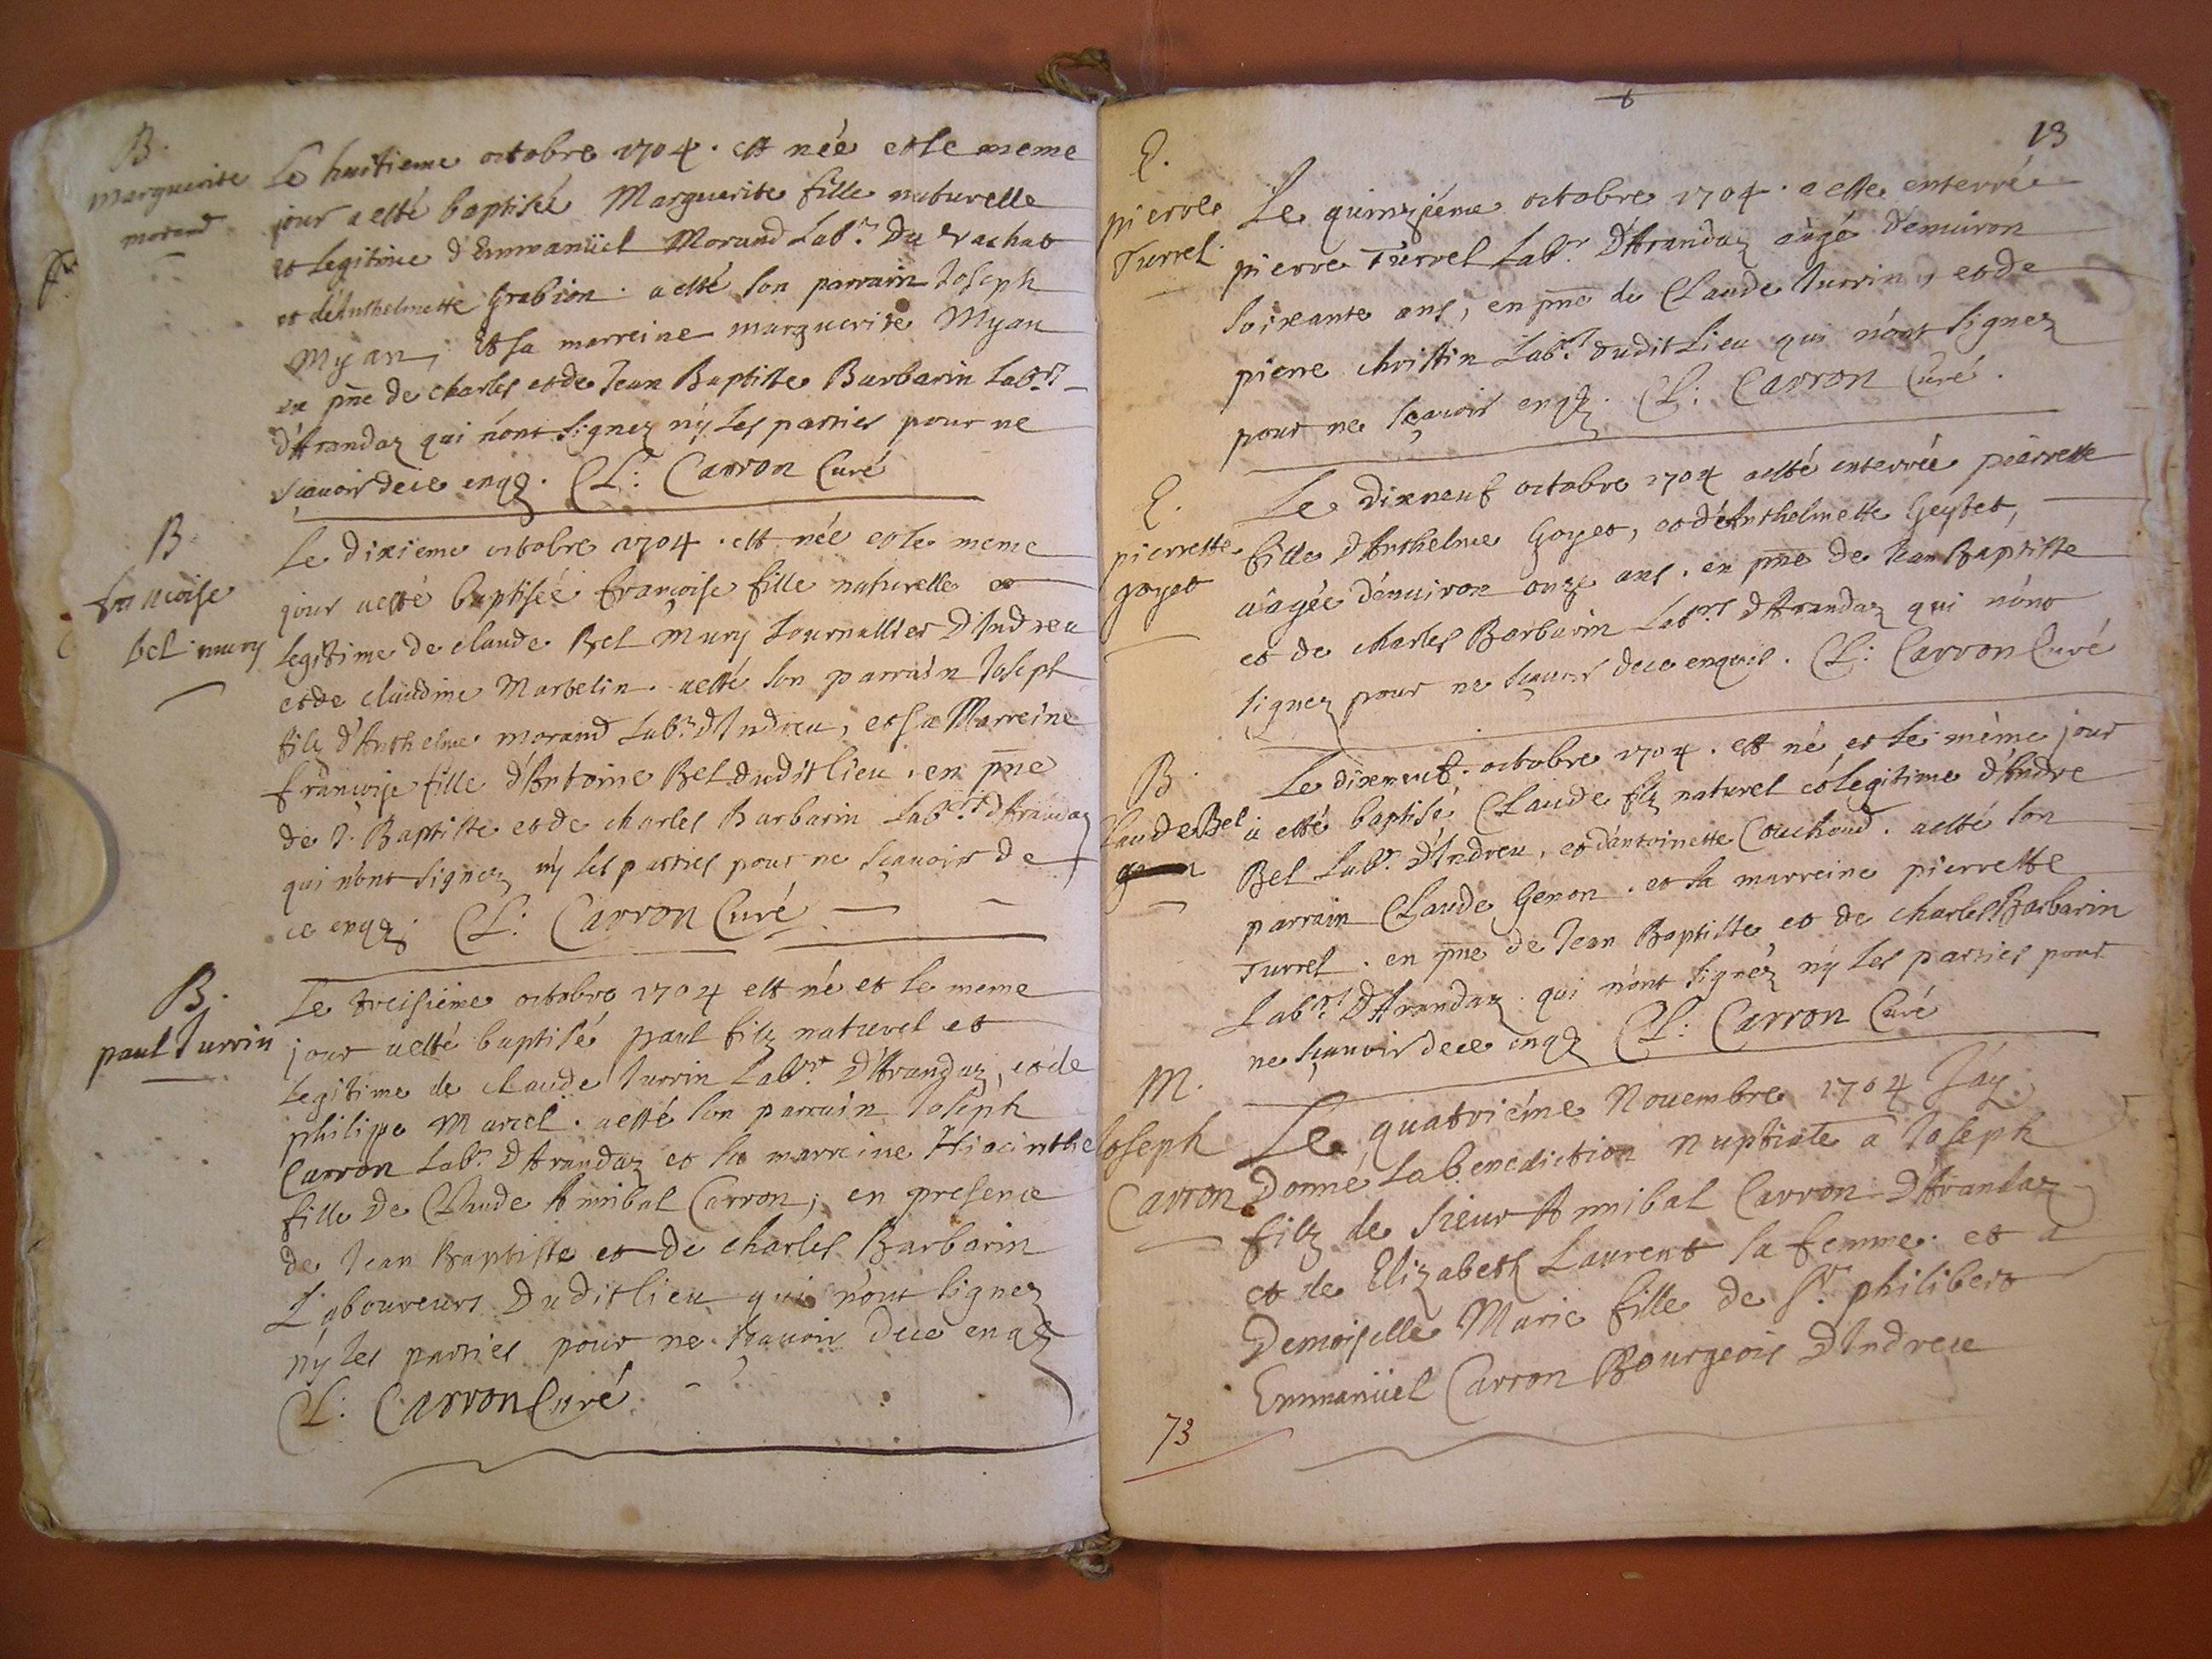 B.
Marguerite
morand
Le huitieme octobre 1704. est née et le meme
jour a esté baptisée Marguerite fille naturelle
et legitime d'Emmanüel Morand Lab.r Du Vachat
et deAnthelmette Grabion. a esté son parrain Joseph
Myan, Et sa marreine marguerite Myan
en pn̄ce de charles et de Jean Baptiste Barbarin Lab.rs
d'Arandaz qui n'ont signez ny Les parties pour ne
sçavoir dece enqz. CL: Carron Curé
B.
francoise
bel mury
Le dixieme octobre 1704. est née et le meme
jour a esté baptisée françoise fille naturelle et
legitime de claude Bel Mury Journallier D'Indreu
et de claudine Martelin. a esté son parrain Joseph
filz d'Anthelme morand Lab.r D'Indreu, et sa Marreine
françoise fille d'Antoine Bel dudit lieu. en pn̄ce
de J. Baptiste et de charles Barbarin Lab.rs d'Arandaz
qui n'ont signez ny les parties pour ne sçavoir de
ce enqz. CL: Carron Curé
B.
paul Turrin
Le treisieme octobre 1704 est né et le meme
jour a esté baptisé paul filz naturel et
Legitime de claude Turrin Lab.r D'Arandaz, et de
philipe Marcel. a esté son parrain Joseph
Carron Lab.r D'Arandaz et sa marreine Hiacinthe
fille de Claude Annibal Carron; en presence
de Jean Baptiste et de charles Barbarin
Laboureurs Dudit lieu qui n'ont signez
ny les parties pour ne sçavoir dece enqz
CL: Carron Curé
13
E.
pierre
Turrel
Le quinziéme octobre 1704. a esté enterré
pierre Turrel Lab.r D'Arandaz aägé d'environ
soixante ans, en pn̄ce de Claude Turrin, et de
pierre christin Lab.rs dudit Lieu qui n'ont signez
pour ne sçavoir enqz. CL: Carron Curé.
E.
pierrette
goyet
Le dixneuf octobre 1704 a esté enterrée pierrette
fille D'Anthelme Goyet, et d'Anthelmette Geytet,
aägée d'environ onze ans. en pn̄ce de Jean Baptiste
et de charles Barbarin Lab.rs D'Arandaz qui n'ont
signez pour ne sçavoir dece enquis. CL: Carron Curé
B.
Claude Bel
Le dixneuf. octobre 1704. est né et le méme jour
a esté baptisé Claude filz naturel et Legitime d'Andre
Bel Lab.r D'Indreu, et d'antoinette Couchoud. a esté son
parrain Claude Genon. et sa marreine pierrette
Turrel. en pn̄ce de Jean Baptiste et de charles Barbarin
Lab.rs D'Arandaz qui n'ont signéz ny les parties pour
ne sçavoir dece enqz CL: Carron Curé
M.
Joseph
Carron
Le quatriéme Novembre 1704 J'ay
Donné La benediction nuptiale a Joseph
filz de sieur Annibal Carron D'Arandaz
et de Elizabeth Laurent sa femme. et a
Demoiselle Marie fille de S.r philibert
Emmanüel Carron Bourgeois D'Indreu
73